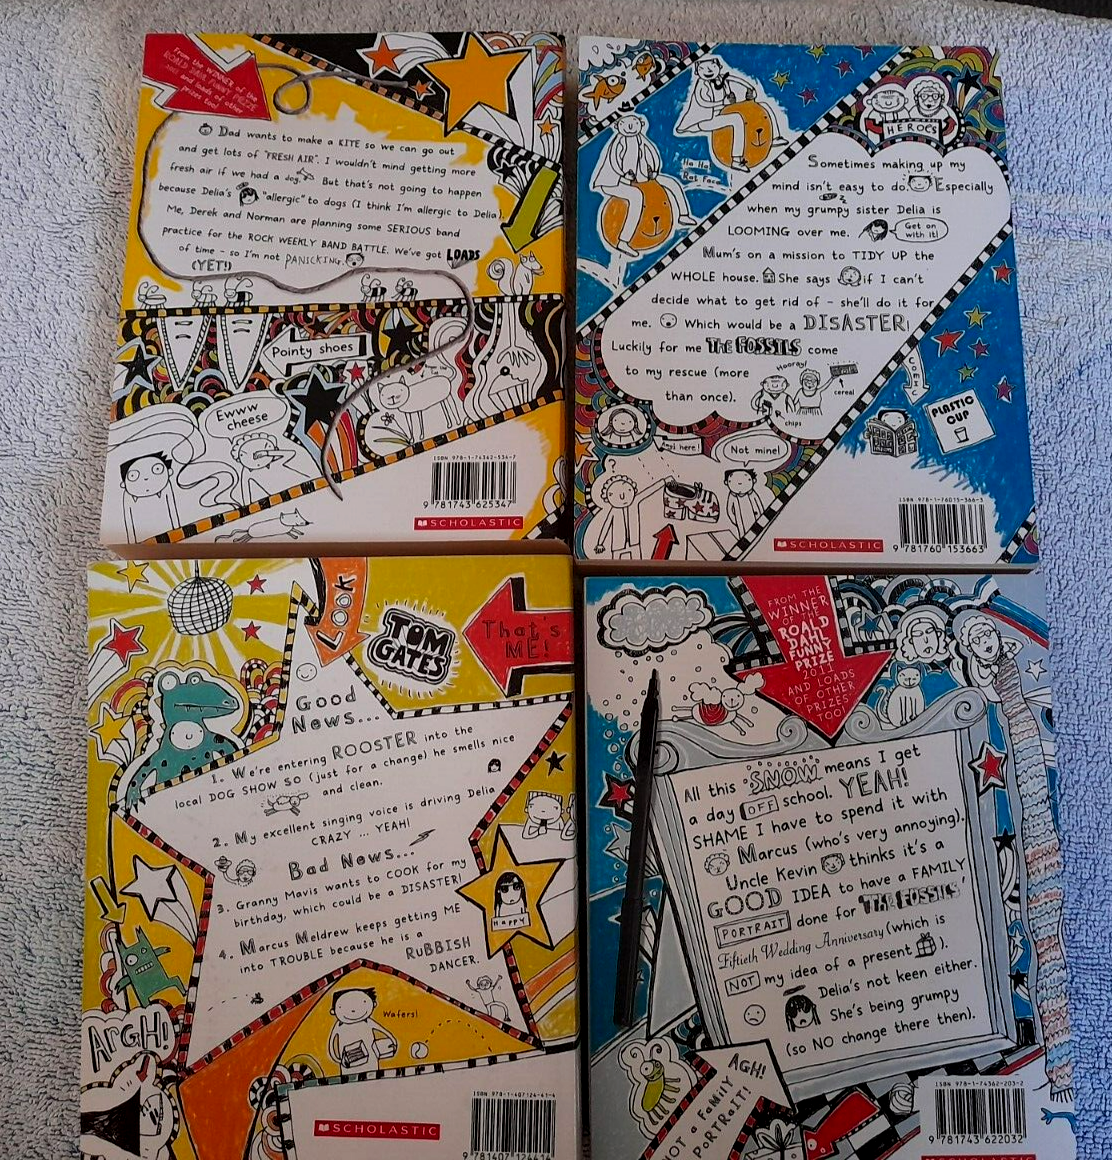 From the WINNER of the
ROALD DAHL FUNNY PRIZE
2011 and loads of other
prizes too!
Dad wants to make a KITE so we can go out
and get lots of "FRESH AIR". I wouldn't mind getting more
fresh air if we had a dog. But that's not going to happen
because Delia's "allergic" to dogs (I think I'm allergic to Delia).
Me, Derek and Norman are planning some SERIOUS band
practice for the ROCK WEEKLY BAND BATTLE. We've got LOADS
of time - so I'm not PANICKING.
(YET!)
Pointy shoes
Ewww
cheese
ISBN 978-1-74362-534-7
9 781743 625347
SCHOLASTIC
HEROES
Ha Ha
Rat Face
Sometimes making up my
mind isn't easy to do. Especially
when my grumpy sister Delia is
LOOMING over me.
Get on
with it!
Mum's on a mission to TIDY UP the
WHOLE house. She says if I can't
decide what to get rid of - she'll do it for
me. Which would be a DISASTER!
Luckily for me THE FOSSILS come
to my rescue (more
than once).
Hooray!
cereal
chips
COMIC
PLASTIC
CUP
here!
Not mine!
ISBN 978-1-76015-366-3
9 781760 153663
SCHOLASTIC
LOOK
TOM
GATES
That's
ME!
Good
News...
1. We're entering ROOSTER into the
local DOG SHOW SO (just for a change) he smells nice
and clean.
2. My excellent singing voice is driving Delia
CRAZY ... YEAH!
Bad News...
3. Granny Mavis wants to COOK for my
birthday, which could be a DISASTER!
4. Marcus Meldrew keeps getting ME
into TROUBLE because he is a
RUBBISH
DANCER.
HAPPY
Wafers!
ARGH!
SCHOLASTIC
ISBN 978-1-407124-41-4
9 781407 124414
FROM THE
WINNER
OF THE
ROALD
DAHL
FUNNY
PRIZE
2011
AND LOADS
OF OTHER
PRIZES
TOO!
All this SNOW means I get
a day OFF school. YEAH!
SHAME I have to spend it with
Marcus (who's very annoying).
Uncle Kevin thinks it's a
GOOD IDEA to have a FAMILY
PORTRAIT done for 'THE FOSSILS'
Fiftieth Wedding Anniversary (which is
NOT my idea of a present).
Delia's not keen either.
She's being grumpy
(so NO change there then).
AGH!
NOT a FAMILY
PORTRAIT!
ISBN 978-1-74362-203-2
9 781743 622032
SCHOLASTIC